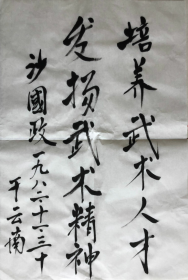 培养武术人才
发扬武术精神
沙國政一九八六十一三十
于云南